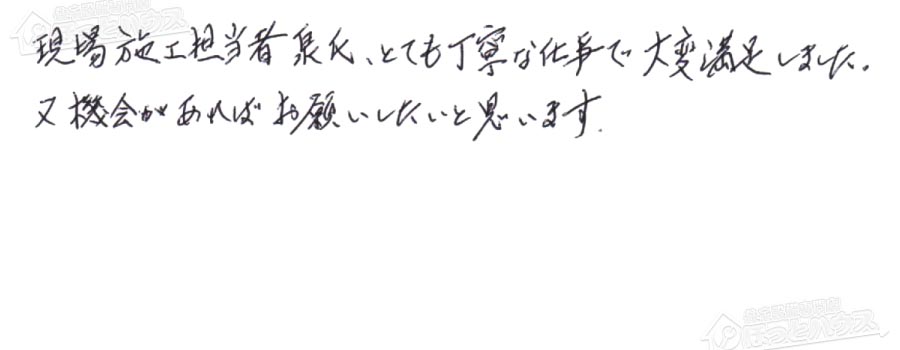 現場施工担当者泉氏、とても丁寧な仕事で大変満足しました。
又機会があればお願いしたいと思います.
ほっとハウス